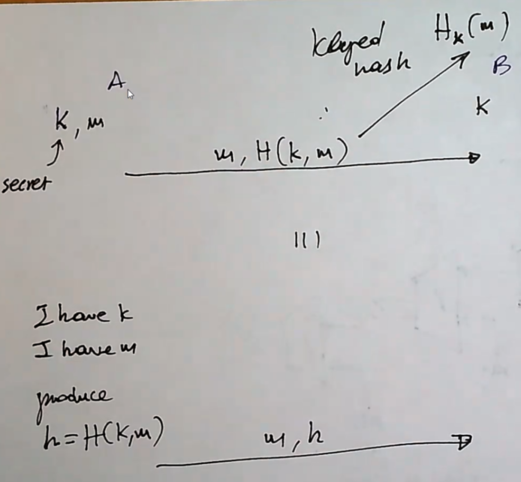 Keyed
hash
H_k(m)
A
B
k, m
k
secret
m, H(k,m)
|||
I have k
I have m
produce
h=H(k,m)
m, h